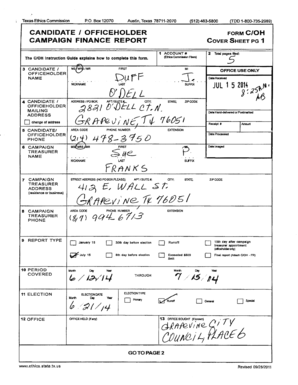 Texas Ethics Commission P.O. Box 12070 Austin, Texas 78711-2070 (512) 463-5800 (TDD 1-800-735-2989)
CANDIDATE / OFFICEHOLDER
CAMPAIGN FINANCE REPORT
FORM C/OH
COVER SHEET PG 1
The C/OH Instruction Guide explains how to complete this form.
1 ACCOUNT #
(Ethics Commission Filers)
2 Total pages filed:
5
3 CANDIDATE /
OFFICEHOLDER
NAME
FIRST MI
DUFF J.
NICKNAME LAST SUFFIX
O'DELL
OFFICE USE ONLY
Date Received
JUL 15 2014
4 CANDIDATE /
OFFICEHOLDER
MAILING
ADDRESS
change of address
ADDRESS / PO BOX; APT / SUITE #; CITY; STATE; ZIP CODE
2821 O'DELL CT. N.
GRAPEVINE, TX 76051
Date Hand-delivered or Postmarked
5 CANDIDATE/
OFFICEHOLDER
PHONE
AREA CODE PHONE NUMBER EXTENSION
(214) 478-3950
Date Processed
6 CAMPAIGN
TREASURER
NAME
FIRST MI
SUE P
NICKNAME LAST SUFFIX
FRANKS
Date Imaged
7 CAMPAIGN
TREASURER
ADDRESS
(residence or business)
STREET ADDRESS (NO PO BOX PLEASE); APT / SUITE #; CITY; STATE; ZIP CODE
412 E. WALL ST.
GRAPEVINE TX 76051
8 CAMPAIGN
TREASURER
PHONE
AREA CODE PHONE NUMBER EXTENSION
(817) 994 6713
9 REPORT TYPE
January 15
30th day before election
Runoff
15th day after campaign
treasurer appointment
(officeholder only)
July 15
8th day before election
Exceeded $500
limit
Final report (Attach C/OH - FR)
10 PERIOD
COVERED
Month Day Year
6 / 12 / 14
THROUGH
Month Day Year
7 / 15 / 14
11 ELECTION
ELECTION DATE
Month Day Year
6 / 21 / 14
ELECTION TYPE
Primary
Runoff
General
Special
12 OFFICE
OFFICE HELD (if any)
13 OFFICE SOUGHT (if known)
GRAPEVINE CITY
COUNCIL, PLACE 6
GO TO PAGE 2
www.ethics.state.tx.us